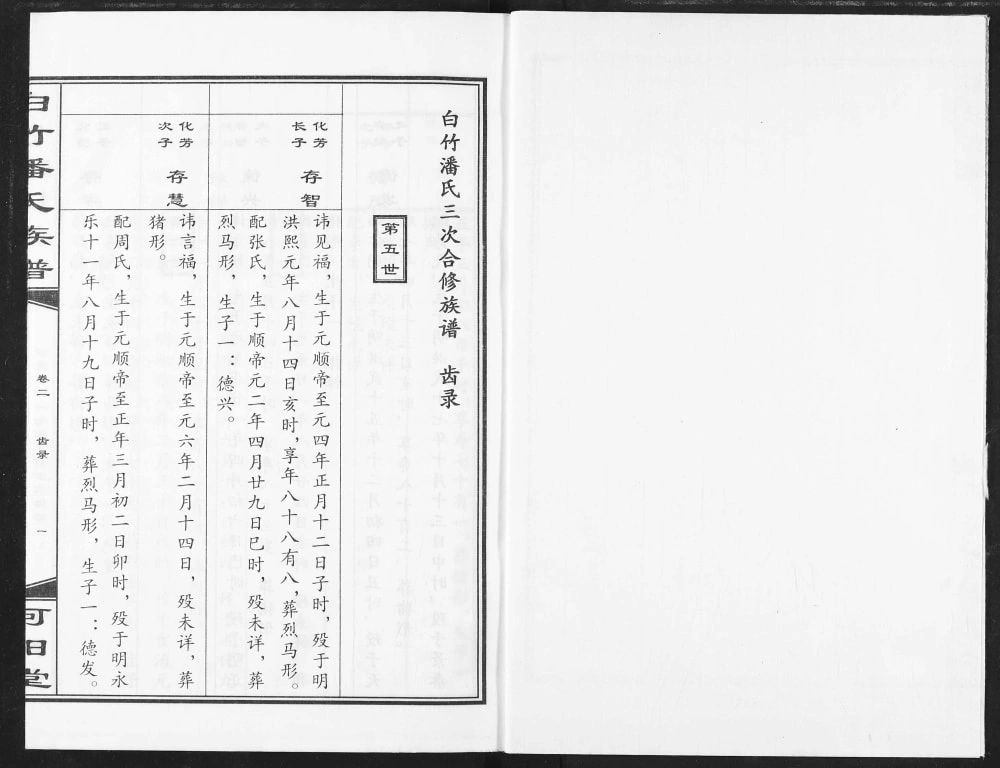 白竹潘氏三次合修族谱 齿录
第五世
化芳
长子
存智
讳见福，生于元顺帝至元四年正月十二日子时，殁于明
洪熙元年八月十四日亥时，享年八十八有八，葬烈马形。
配张氏，生于顺帝元二年四月廿九日巳时，殁未详，葬
烈马形，生子一：德兴。
化芳
次子
存慧
讳言福，生于元顺帝至元六年二月十四日，殁未详，葬
猪形。
配周氏，生于元顺帝至正年三月初二日卯时，殁于明永
乐十一年八月十九日子时，葬烈马形，生子一：德发。
白竹潘氏族谱
卷二
齿录
一